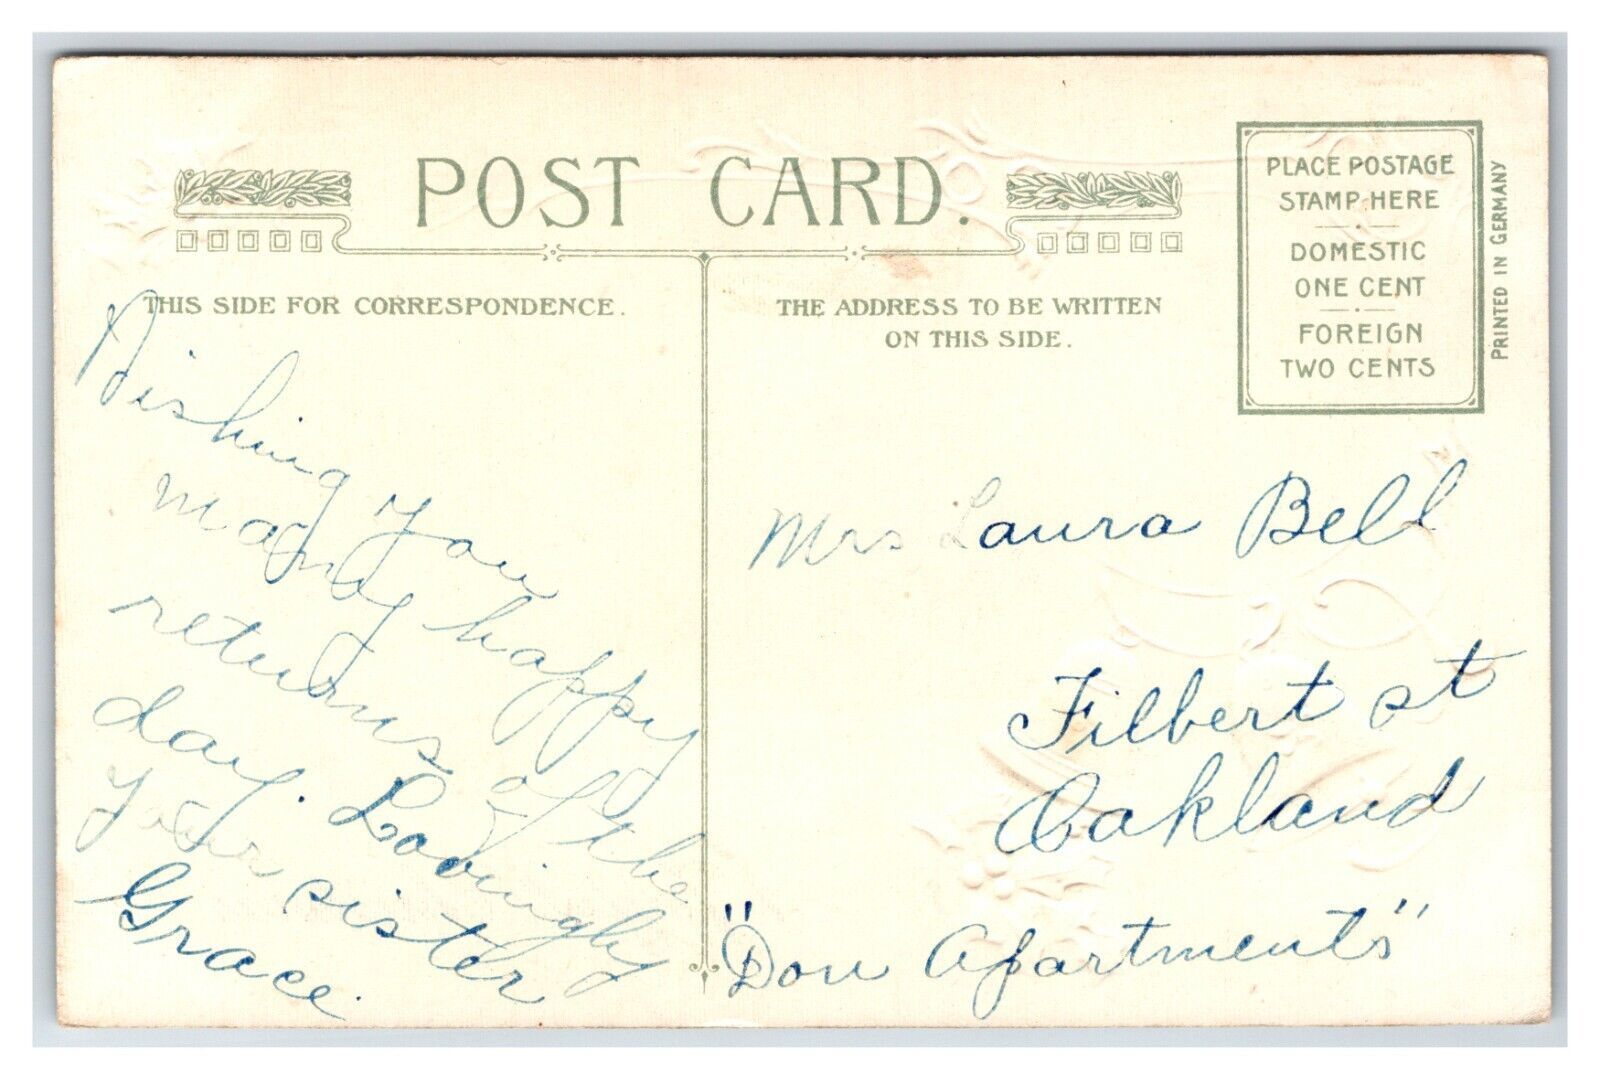 POST CARD.
THIS SIDE FOR CORRESPONDENCE.
THE ADDRESS TO BE WRITTEN
ON THIS SIDE.
PLACE POSTAGE
STAMP HERE
DOMESTIC
ONE CENT
FOREIGN
TWO CENTS
PRINTED IN GERMANY
Wishing you
many happy
returns of the
day. Lovingly
Your sister
Grace.
Mrs Laura Bell
Filbert st
Oakland
"Don Apartments"